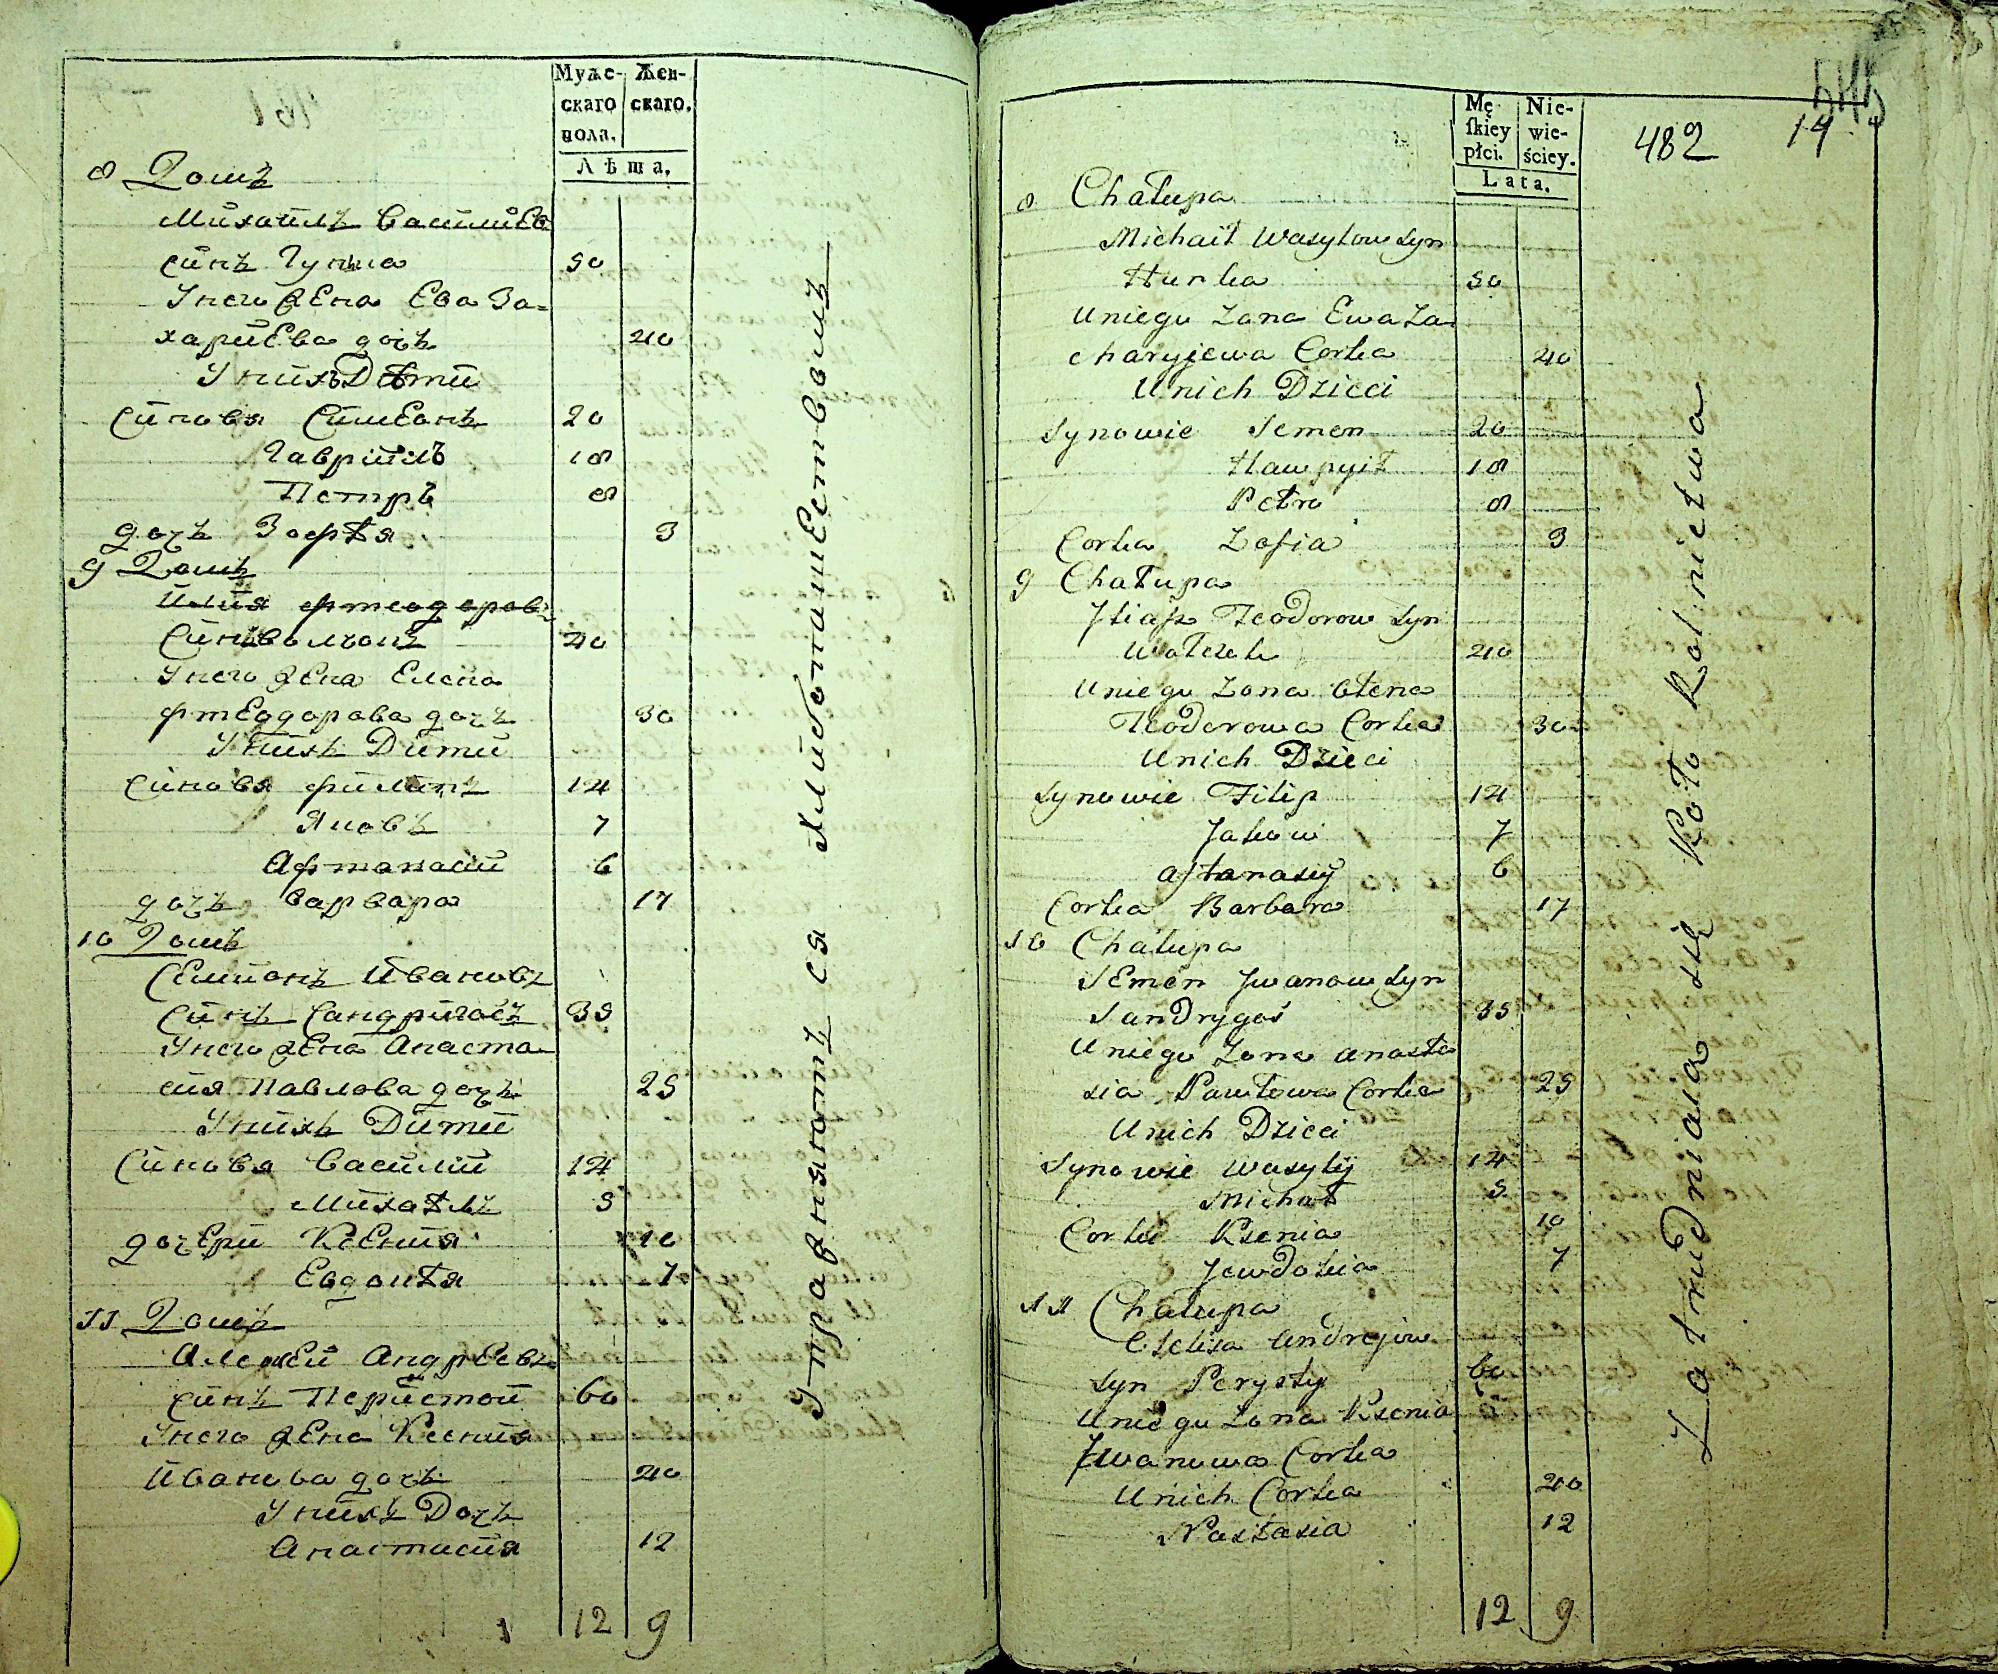 Муже-
скаго
пола.
Жен-
скаго.
Лѣта.
8 Домъ
Михаилъ Василиев
синъ Гунка 50
Унего жена Ева За=
харйева дочь 40
Унихъ Дѣти
Синовя Симеонъ 20
Гаврйилъ 18
Петръ 8
дочъ Зофѣя 3
9 Домъ
Илия фтеодоровъ
Синъ Волчокъ 40
Унего жена Елена
фтеодорова дочъ 30
Унихъ Дити
Синовя филипъ 14
Яковъ 7
Афтанасий 6
дочъ варвара 17
10 Домъ
Семионъ Ивановъ
Синъ Сандригосъ 35
Унего жена Анаста
сия Павлова дочъ 25
Унихъ Дити
Синовя Василий 14
Михаѣлъ 5
дочери Ксения 10
Евдокѣя 7
11 Домъ
Алежей Андреевъ
синъ Перйстой 60
Унего жена Ксения
Иванова дочъ 40
Унихъ Дочъ
Анастасия 12
12 9
Упражняютъ ся Хлиботашествомъ
Mę-
ſkiey
płci.
Nie-
wie-
ściey.
Lata.
482
14
545
8 Chałupa
Michaił Wasylow Syn
Hunka 50
Uniego Zona Ewa Za
charyjewa Corka 40
Unich Dzieci
Synowie Semen 20
Hawryił 18
Petro 8
Corka Zofia 3
9 Chałupa
Jliasz Teodorow Syn
Wołczok 40
Uniego Zona Ołena
Teodorowa Corka 30
Unich Dzieci
Synowie Filip 14
Jakow 7
Aftanasiy 6
Corka Barbara 17
10 Chałupa
Semen Jwanow Syn
Sandrygoś 35
Uniego Zona Anasta
sia Pawłowa Corka 25
Unich Dzieci
Synowie Wasylÿ 14
Michał 5
Corki Ksenia 10
Jewdokia 7
11 Chałupa
Ołeksa Andrejow
Syn Perysty 60
Uniego Zona Ksenia
Jwanowa Corka
Unich Corka 40
Nastasia 12
12 9
Zatrudniaią się Koło Rolnictwa